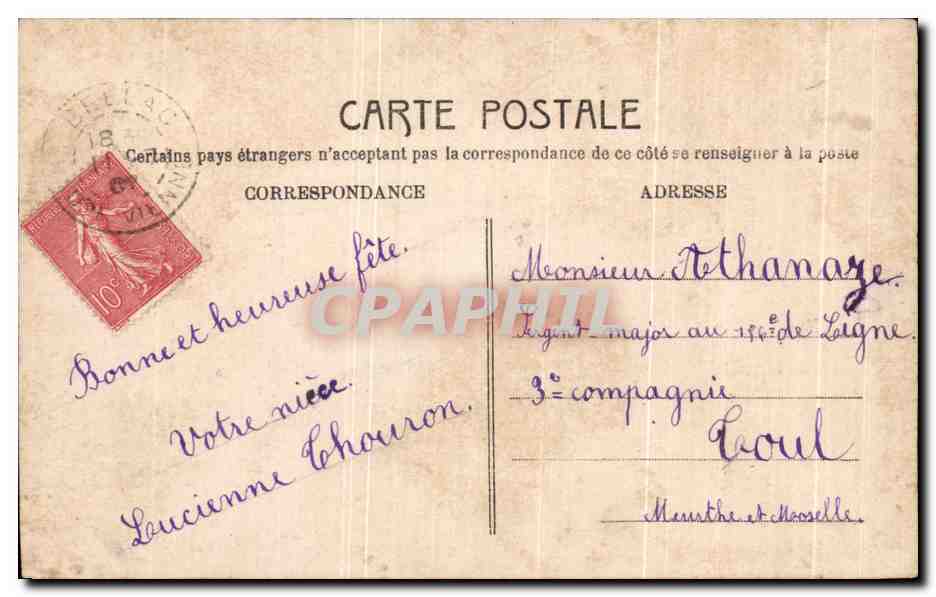 CARTE POSTALE
Certains pays étrangers n'acceptant pas la correspondance de ce côté se renseigner à la poste
CORRESPONDANCE
ADRESSE
10c
Bonne et heureuse fête.
Votre nièce.
Lucienne Thouron.
Monsieur Athanaze.
Sergent-major au 156e de Ligne.
3e compagnie
Toul
Meurthe et Moselle.
CPAPHIL